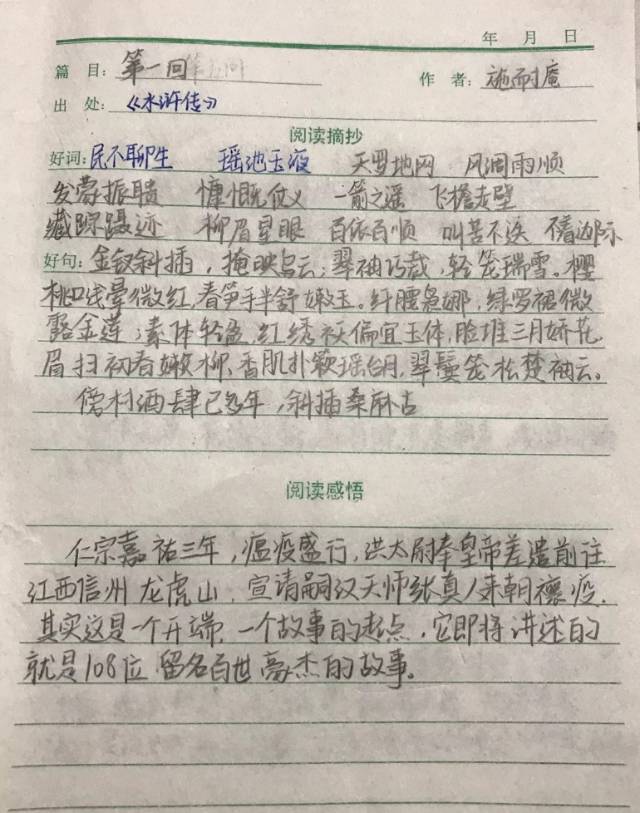 年 月 日
篇 目: 第一回 作 者: 施耐庵
出 处: 《水浒传》
阅读摘抄
好词: 民不聊生 瑶池玉液 天罗地网 风调雨顺
发蒙振聩 慷慨仗义 一箭之遥 飞檐走壁
藏踪蹑迹 柳眉星眼 百依百顺 叫苦不迭 不着边际
好句: 金钗斜插，掩映乌云；翠袖巧裁，轻笼瑞雪。樱
桃口浅晕微红，春笋手半舒嫩玉。纤腰袅娜，绿罗裙微
露金莲；素体轻盈，红绣袄偏宜玉体，脸堆三月娇花，
眉扫初春嫩柳，香肌扑簌瑶台月，翠鬓笼松楚岫云。
傍村酒肆已多年，斜插桑麻古
阅读感悟
仁宗嘉祐三年，瘟疫盛行，洪太尉奉皇帝差遣前往
江西信州龙虎山，宣请嗣汉天师张真人来朝禳疫.
其实这是一个开端，一个故事的起点，它即将讲述的
就是108位留名百世豪杰的故事。